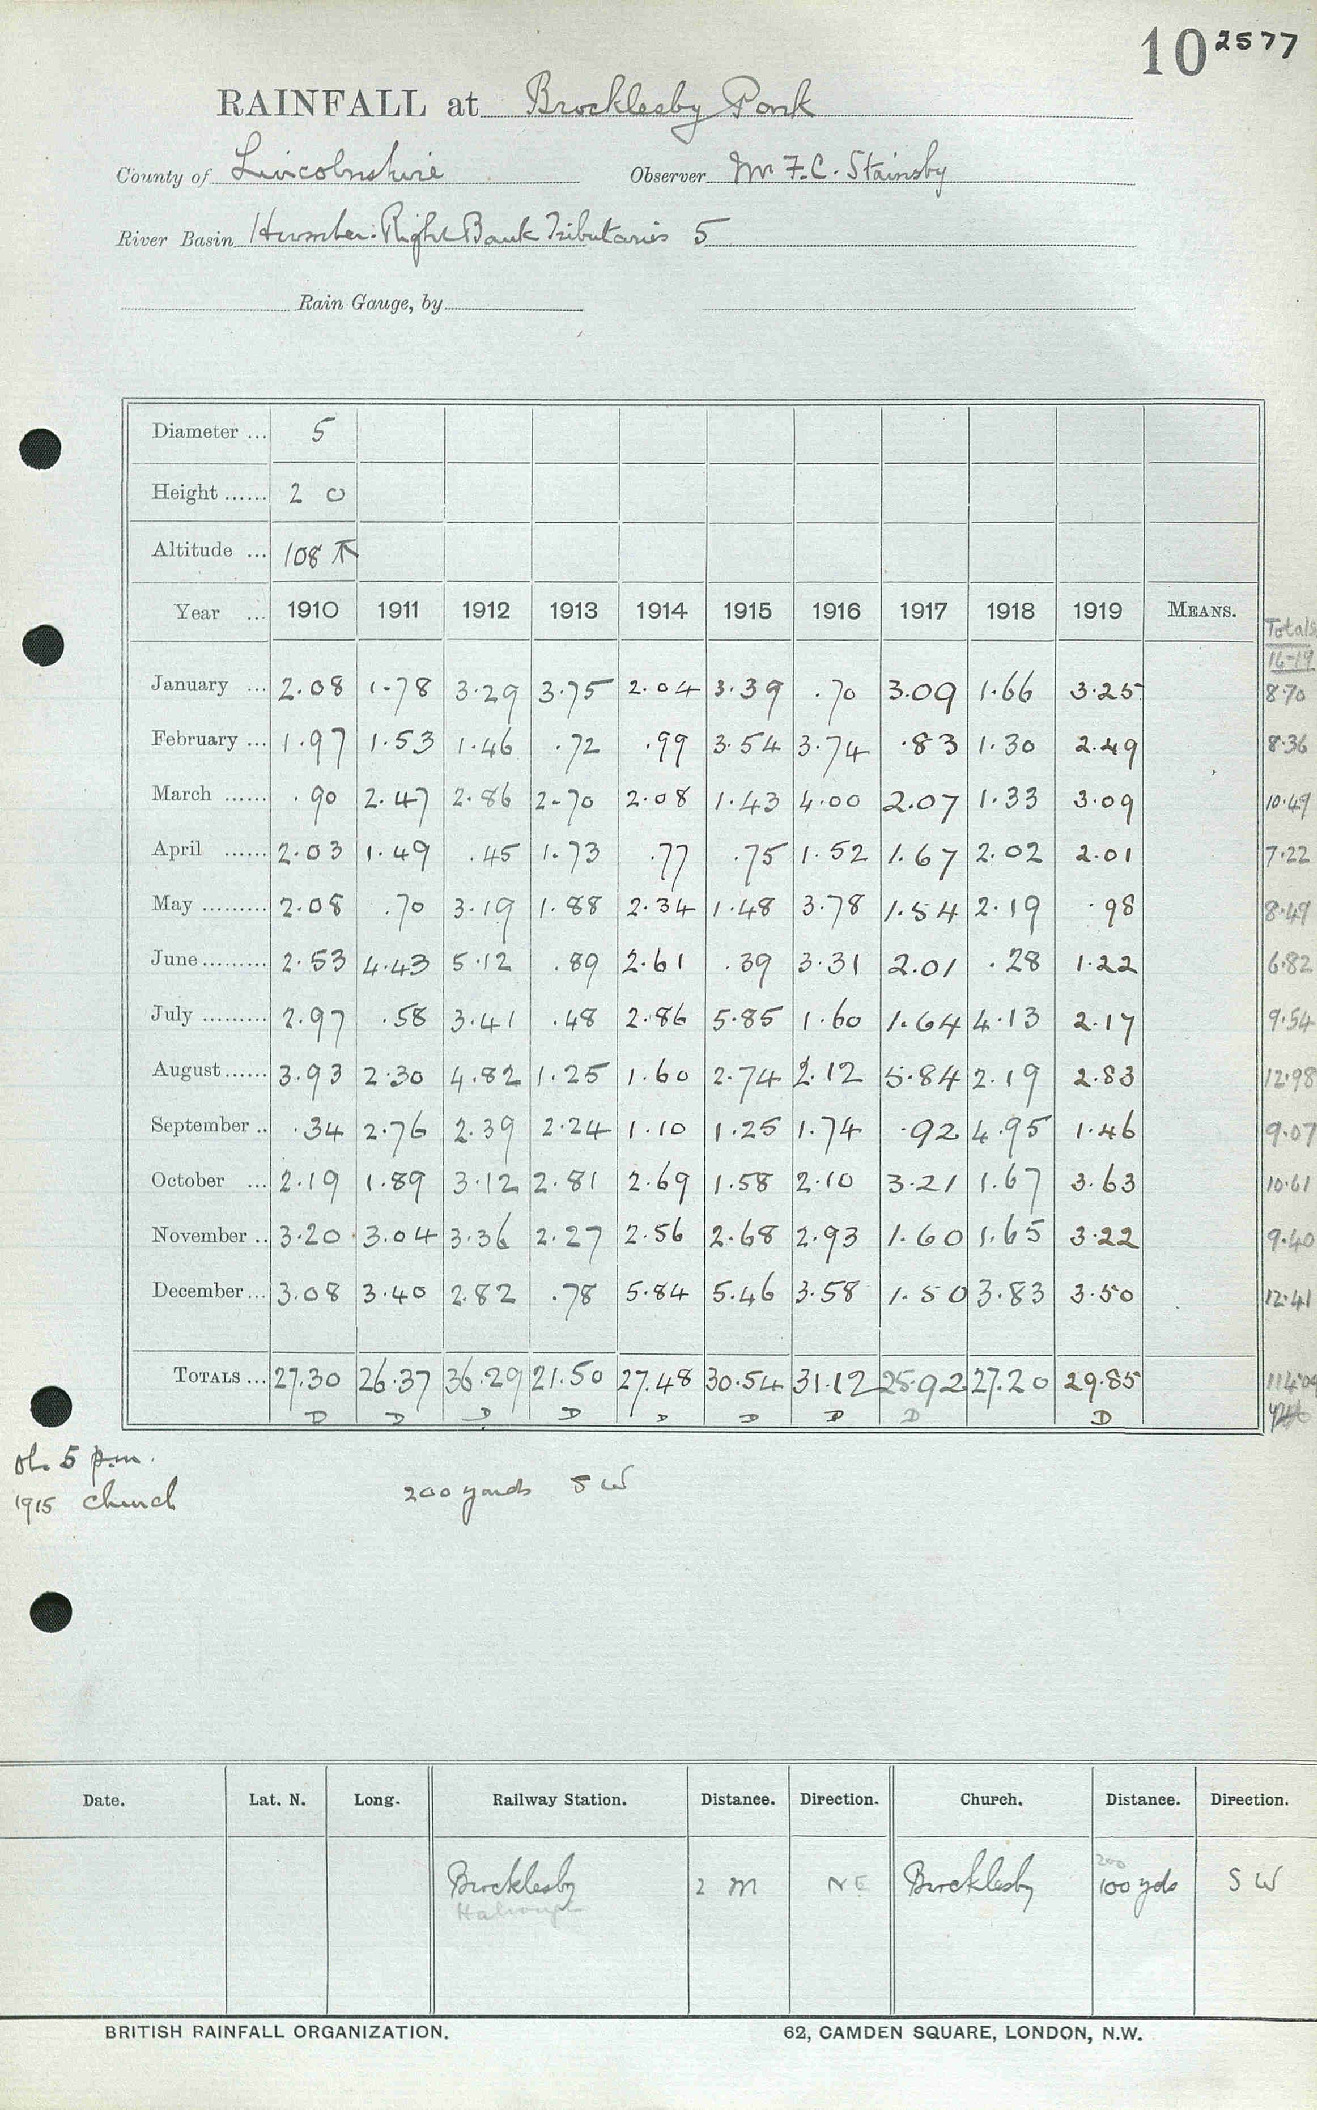 10 2577
RAINFALL at Brocklesby Park
County of Lincolnshire Observer Mr F.C. Stainsby
River Basin Humber. Right Bank Tributaries 5
Rain Gauge, by
Diameter ... 5
Height ...... 2 0
Altitude ... 108
Year ... 1910 1911 1912 1913 1914 1915 1916 1917 1918 1919 MEANS. Totals
16-19
January ... 2.08 1.78 3.29 3.75 2.04 3.39 .70 3.09 1.66 3.25 8.70
February ... 1.97 1.53 1.46 .72 .99 3.54 3.74 .83 1.30 2.49 8.36
March ...... .90 2.47 2.86 2.70 2.08 1.43 4.00 2.07 1.33 3.09 10.49
April ...... 2.03 1.49 .45 1.73 .77 .75 1.52 1.67 2.02 2.01 7.22
May ......... 2.08 .70 3.19 1.88 2.34 1.48 3.78 1.54 2.19 .98 8.49
June ......... 2.53 4.43 5.12 .89 2.61 .39 3.31 2.01 .28 1.22 6.82
July ......... 2.97 .58 3.41 .48 2.86 5.85 1.60 1.64 4.13 2.17 9.54
August ...... 3.93 2.30 4.82 1.25 1.60 2.74 2.12 5.84 2.19 2.83 12.98
September .. .34 2.76 2.39 2.24 1.10 1.25 1.74 .92 4.95 1.46 9.07
October ... 2.19 1.89 3.12 2.81 2.69 1.58 2.10 3.21 1.67 3.63 10.61
November .. 3.20 3.04 3.36 2.27 2.56 2.68 2.93 1.60 1.65 3.22 9.40
December ... 3.08 3.40 2.82 .78 5.84 5.46 3.58 1.50 3.83 3.50 12.41
TOTALS ... 27.30 26.37 36.29 21.50 27.48 30.54 31.12 25.92 27.20 29.85 114.09
D D D D D D D D D
5 p.m.
1915 church 200 yards SW
Date. Lat. N. Long. Railway Station. Distance. Direction. Church. Distance. Direction.
200
Brocklesby 2 m NE Brocklesby 100 yds SW
BRITISH RAINFALL ORGANIZATION. 62, CAMDEN SQUARE, LONDON, N.W.